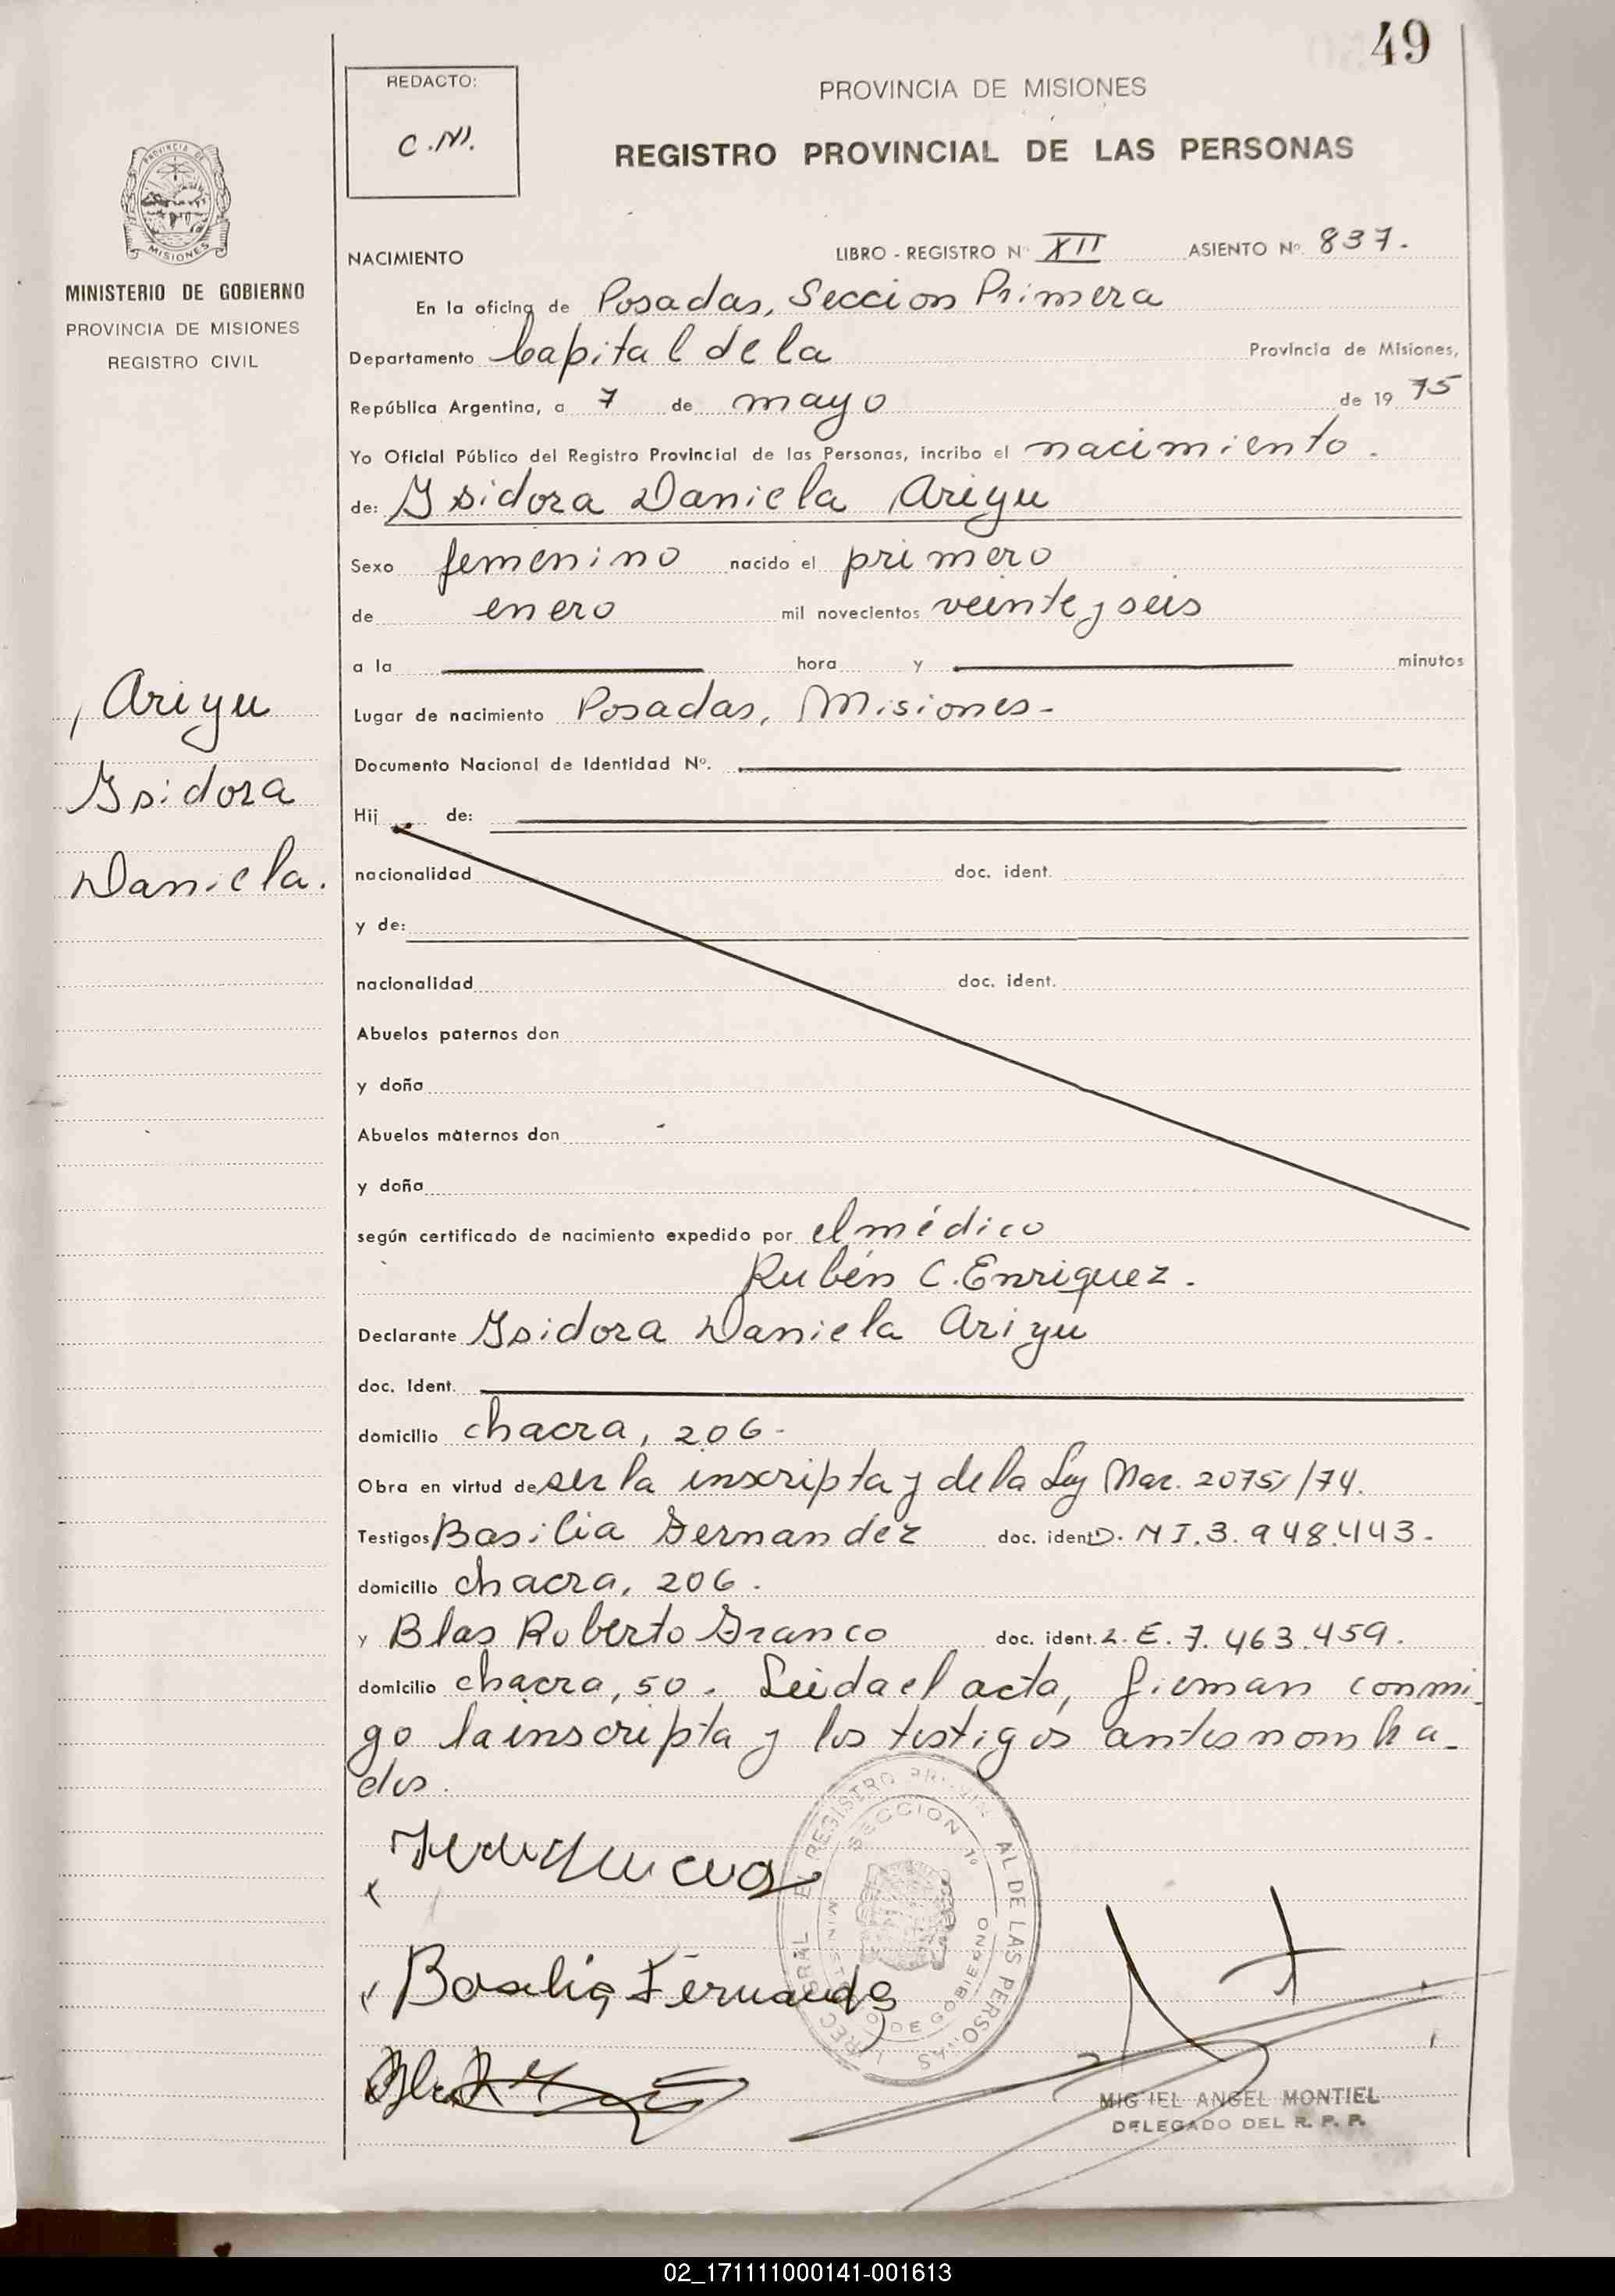 49
REDACTO:
C.M.
PROVINCIA DE MISIONES
REGISTRO PROVINCIAL DE LAS PERSONAS
PROVINCIA DE
MISIONES
MINISTERIO DE GOBIERNO
PROVINCIA DE MISIONES
REGISTRO CIVIL
NACIMIENTO LIBRO - REGISTRO Nº XII ASIENTO Nº 837.
En la oficina de Posadas, Seccion Primera
Departamento Capital de la Provincia de Misiones,
República Argentina, a 7 de mayo de 19 75
Yo Oficial Público del Registro Provincial de las Personas, incribo el nacimiento.
de: Isidora Daniela Ariyu
Sexo femenino nacido el primero
de enero mil novecientos veinte y seis
a la hora y minutos
Ariyu
Isidora
Daniela.
Lugar de nacimiento Posadas, Misiones-
Documento Nacional de Identidad Nº.
Hij de:
nacionalidad doc. ident.
y de:
nacionalidad doc. ident.
Abuelos paternos don
y doña
Abuelos maternos don
y doña
según certificado de nacimiento expedido por el médico
Rubén C. Enriquez.
Declarante Isidora Daniela Ariyu
doc. Ident.
domicilio chacra, 206-
Obra en virtud de ser la inscripta y de la Ley Nac. 20751/74.
Testigos Basilia Fernandez doc. ident D. N I. 3.948.443.
domicilio chacra, 206.
y Blas Roberto Franco doc. ident. L. E. 7.463.459.
domicilio chacra, 50. Leida el acta, firman conmi
go la inscripta y los testigos antes nomba-
dos.
REGISTRO PROVINCIAL DE LAS PERSONAS
SECCION 1º
MINISTERIO DE GOBIERNO
Basilia Fernandes
MIGUEL ANGEL MONTIEL
DELEGADO DEL R. P. P.
02_171111000141-001613